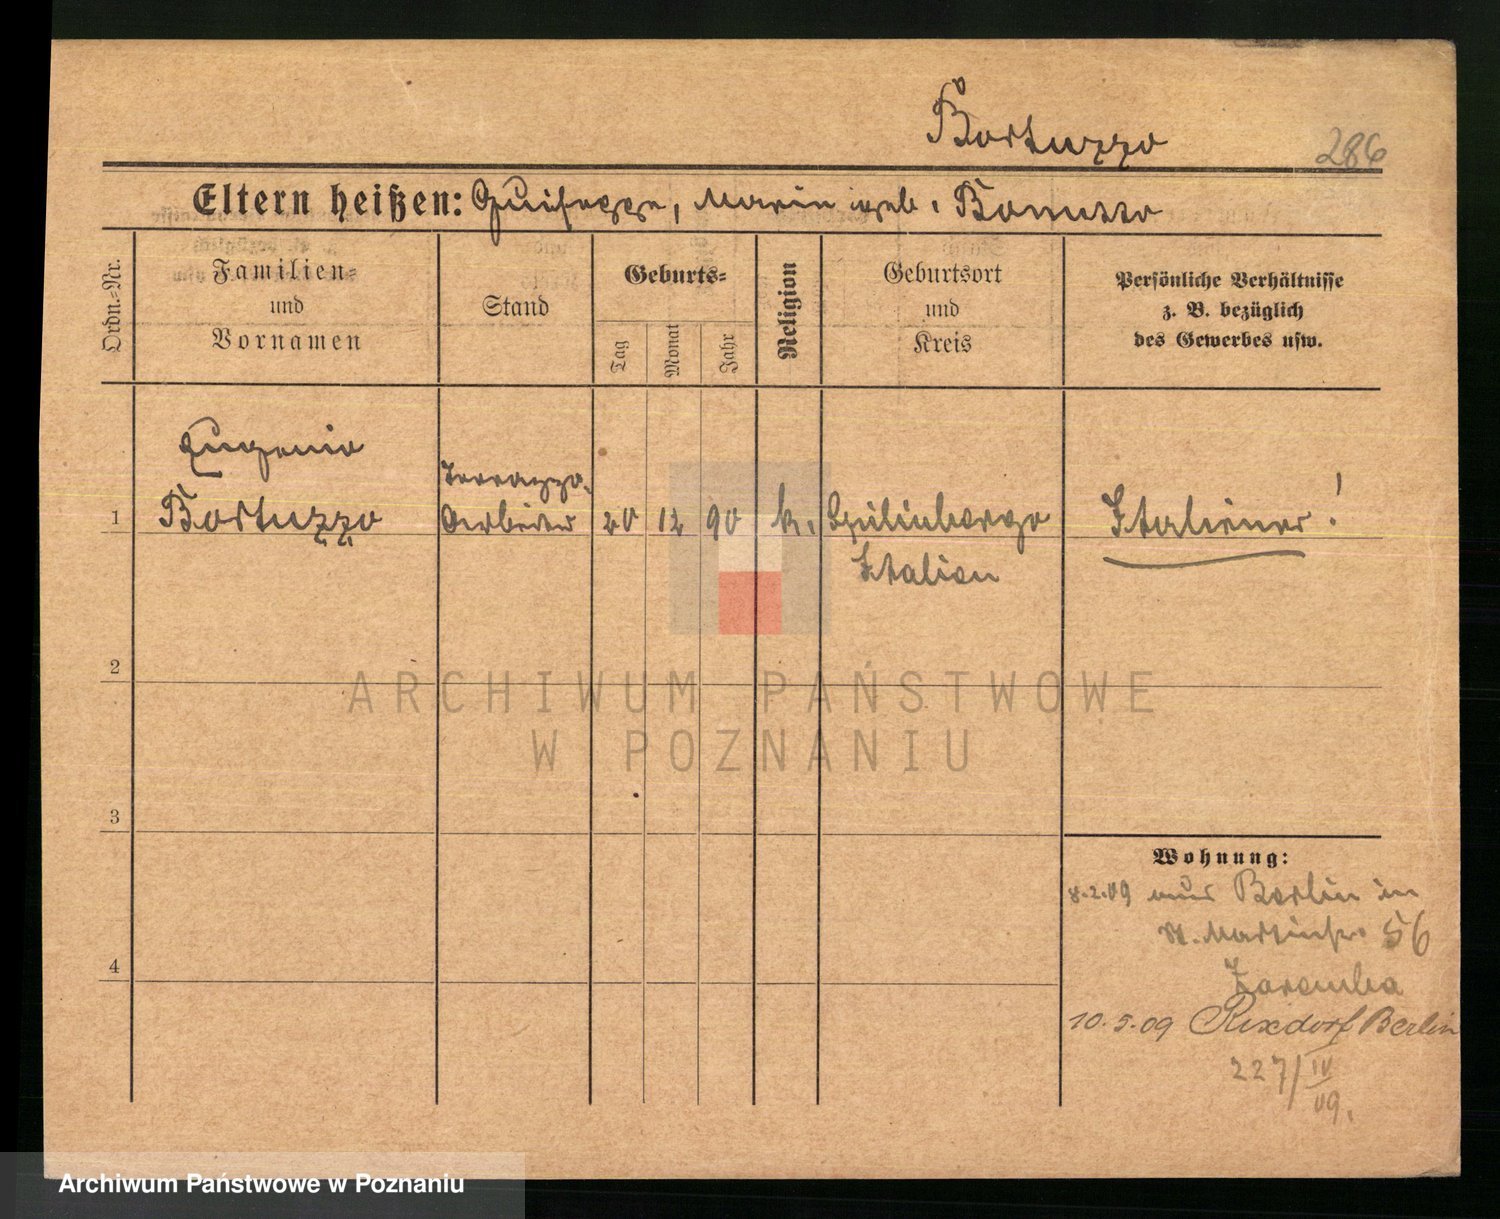 Bortuzzo
286
Eltern heißen: Guiseppe, Maria geb. Bonusso
Ordn.-Nr.
Familien-
und
Vornamen
Stand
Geburts-
Tag
Monat
Jahr
Religion
Geburtsort
und
Kreis
Persönliche Verhältnisse
z. B. bezüglich
des Gewerbes usw.
Eugenio
Terrazzo-
1 Bortuzzo Arbeiter 20 12 90 k. Spilinbergo Italiener!
Italien
2
ARCHIWUM PAŃSTWOWE
W POZNANIU
3
Wohnung:
8.2.09 aus Berlin in
St. Martinstr. 56
4
Zaremba
10.5.09 Rixdorf Berlin
227/IV
09.
Archiwum Państwowe w Poznaniu